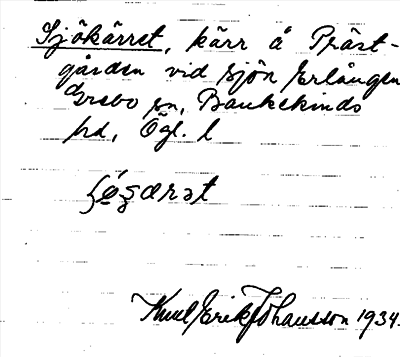 Sjökärret, kärr å Präst-
gården vid sjön Erlången
Grebo sn, Bankekinds
hd, Ögl. l

Knut Erik Johansson 1934.